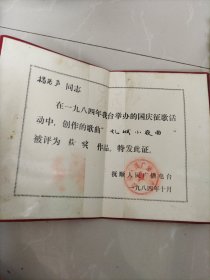 同志
在一九八四年我台举办的国庆征歌活
动中，创作的歌曲"机城小夜曲"
被评为 获奖 作品，特发此证。
抚顺人民广播电台
一九八四年十月